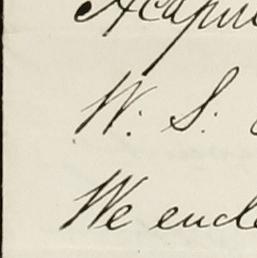 Acapu
W. S.
We encl